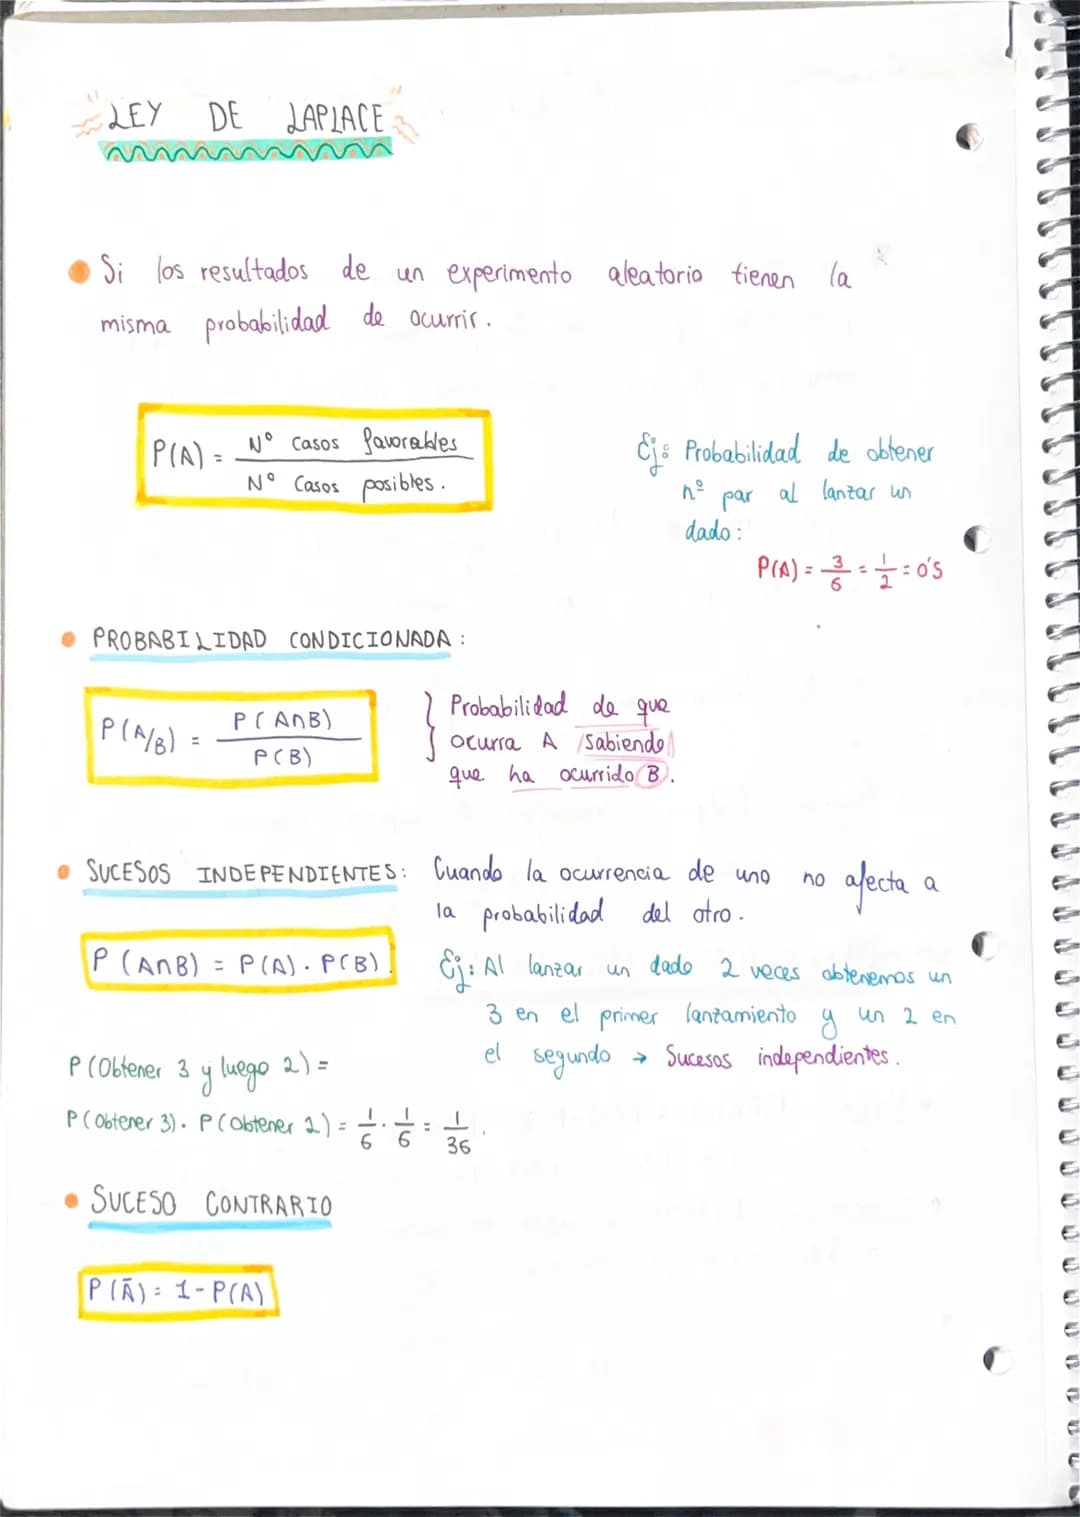 LEY DE LAPLACE
Si los resultados de un experimento aleatorio tienen la
misma probabilidad de ocurrir.
P(A) = Nº Casos favorables / Nº Casos posibles.
Ej: Probabilidad de obtener
nº par al lanzar un
dado:
P(A) = 3/6 = 1/2 = 0'5
PROBABILIDAD CONDICIONADA:
P(A/B) = P(A∩B) / P(B)
Probabilidad de que
ocurra A sabiendo
que ha ocurrido B.
SUCESOS INDEPENDIENTES: Cuando la ocurrencia de uno no afecta a
la probabilidad del otro.
P(A∩B) = P(A) . P(B)
Ej: Al lanzar un dado 2 veces obtenemos un
3 en el primer lanzamiento y un 2 en
el segundo → Sucesos independientes.
P(Obtener 3 y luego 2) =
P(Obtener 3). P(Obtener 2) = 1/6 . 1/6 = 1/36.
SUCESO CONTRARIO
P(Ā) = 1 - P(A)